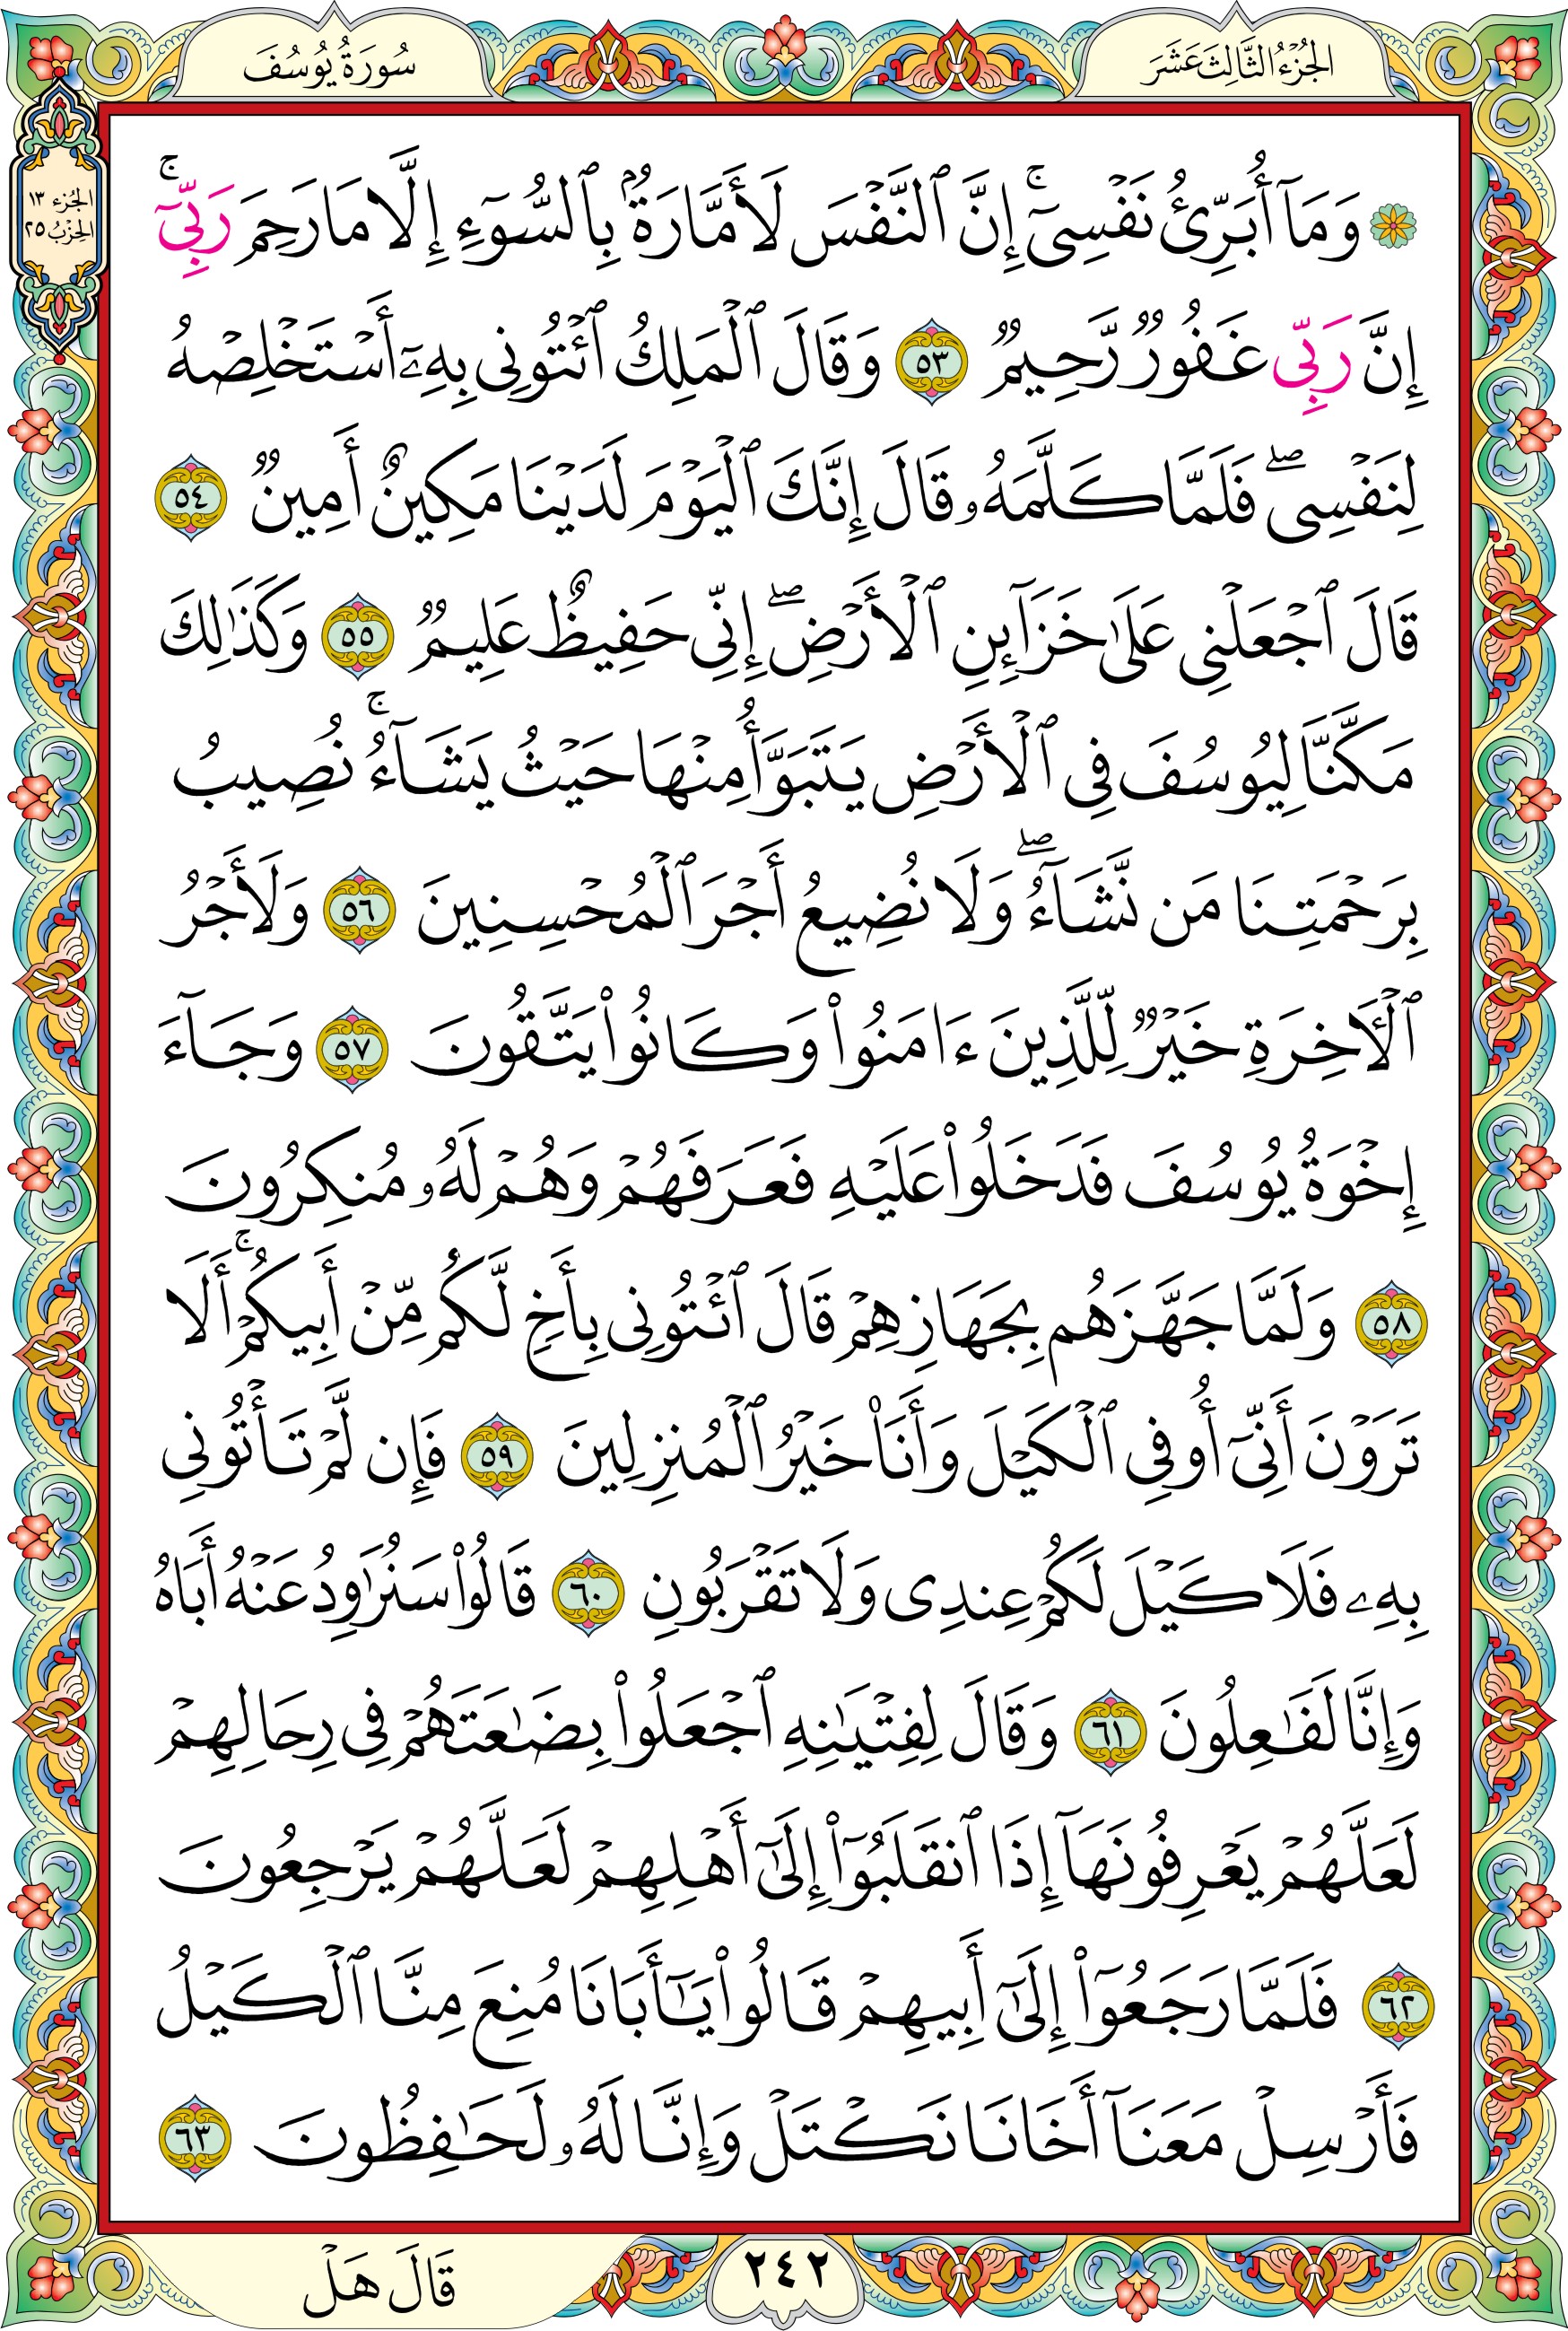 الجُزْءُ الثَّالِثَ عَشَرَ
سُورَةُ يُوسُفَ
الجُزء ١٣
الحِزْبُ ٢٥
۞ وَمَآ أُبَرِّئُ نَفْسِىٓ ۚ إِنَّ ٱلنَّفْسَ لَأَمَّارَةٌۢ بِٱلسُّوٓءِ إِلَّا مَا رَحِمَ رَبِّىٓ ۚ
إِنَّ رَبِّى غَفُورٌ رَّحِيمٌ ٥٣ وَقَالَ ٱلْمَلِكُ ٱئْتُونِى بِهِۦٓ أَسْتَخْلِصْهُ
لِنَفْسِى ۖ فَلَمَّا كَلَّمَهُۥ قَالَ إِنَّكَ ٱلْيَوْمَ لَدَيْنَا مَكِينٌ أَمِينٌ ٥٤
قَالَ ٱجْعَلْنِى عَلَىٰ خَزَآئِنِ ٱلْأَرْضِ ۖ إِنِّى حَفِيظٌ عَلِيمٌ ٥٥ وَكَذَٰلِكَ
مَكَّنَّا لِيُوسُفَ فِى ٱلْأَرْضِ يَتَبَوَّأُ مِنْهَا حَيْثُ يَشَآءُ ۚ نُصِيبُ
بِرَحْمَتِنَا مَن نَّشَآءُ ۖ وَلَا نُضِيعُ أَجْرَ ٱلْمُحْسِنِينَ ٥٦ وَلَأَجْرُ
ٱلْـَٔاخِرَةِ خَيْرٌ لِّلَّذِينَ ءَامَنُوا۟ وَكَانُوا۟ يَتَّقُونَ ٥٧ وَجَآءَ
إِخْوَةُ يُوسُفَ فَدَخَلُوا۟ عَلَيْهِ فَعَرَفَهُمْ وَهُمْ لَهُۥ مُنكِرُونَ
٥٨ وَلَمَّا جَهَّزَهُم بِجَهَازِهِمْ قَالَ ٱئْتُونِى بِأَخٍ لَّكُم مِّنْ أَبِيكُمْ ۚ أَلَا
تَرَوْنَ أَنِّىٓ أُوفِى ٱلْكَيْلَ وَأَنَا۠ خَيْرُ ٱلْمُنزِلِينَ ٥٩ فَإِن لَّمْ تَأْتُونِى
بِهِۦ فَلَا كَيْلَ لَكُمْ عِندِى وَلَا تَقْرَبُونِ ٦٠ قَالُوا۟ سَنُرَٰوِدُ عَنْهُ أَبَاهُ
وَإِنَّا لَفَٰعِلُونَ ٦١ وَقَالَ لِفِتْيَٰنِهِ ٱجْعَلُوا۟ بِضَٰعَتَهُمْ فِى رِحَالِهِمْ
لَعَلَّهُمْ يَعْرِفُونَهَآ إِذَا ٱنقَلَبُوٓا۟ إِلَىٰٓ أَهْلِهِمْ لَعَلَّهُمْ يَرْجِعُونَ
٦٢ فَلَمَّا رَجَعُوٓا۟ إِلَىٰٓ أَبِيهِمْ قَالُوا۟ يَٰٓأَبَانَا مُنِعَ مِنَّا ٱلْكَيْلُ
فَأَرْسِلْ مَعَنَآ أَخَانَا نَكْتَلْ وَإِنَّا لَهُۥ لَحَٰفِظُونَ ٦٣
٢٤٢
قَالَ هَلْ